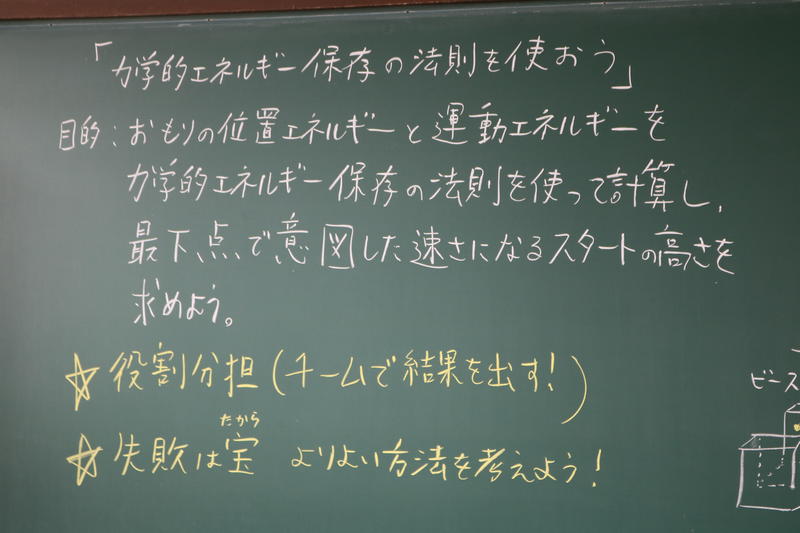 「力学的エネルギー保存の法則を使おう」
目的：おもりの位置エネルギーと運動エネルギーを
力学的エネルギー保存の法則を使って計算し、
最下点で意図した速さになるスタートの高さを
求めよう。
☆役割分担(チームで結果を出す!)
たから
☆失敗は宝 よりよい方法を考えよう!
ビース